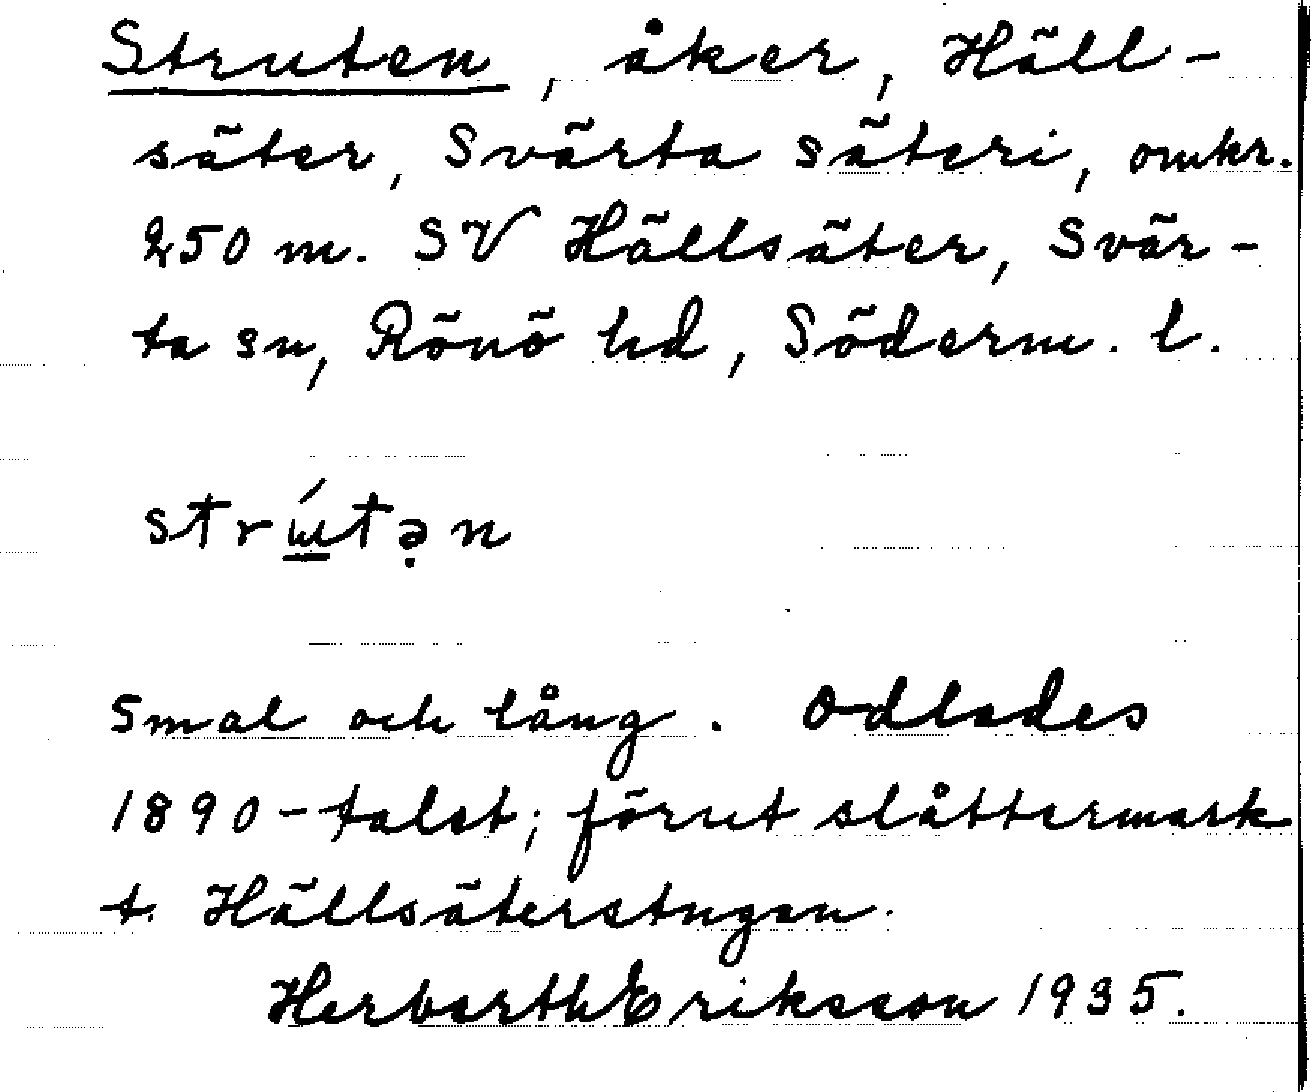 Struten, åker, Häll-
säter, Svärta säteri, omkr.
250 m. SV Hällsäter, Svär-
ta sn, Rönö hd, Söderm. l.
Smal och lång. Odlades
1890-talet; förut slåttermark
t. Hällsäterstugan.
Herbarth Eriksson 1935.